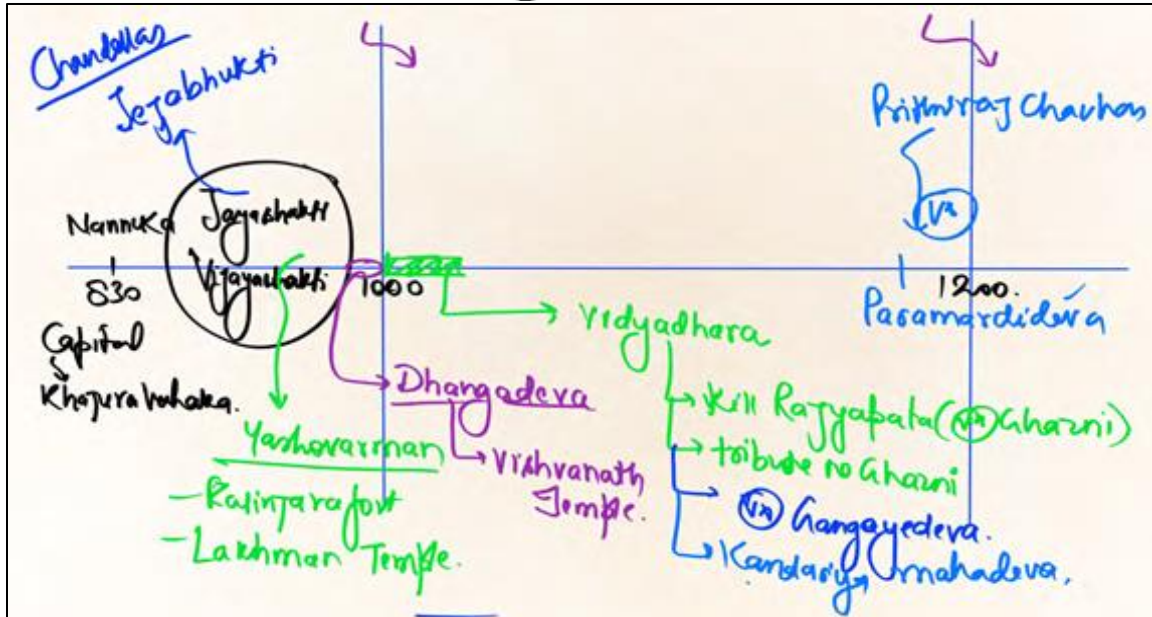 Chandellas
Jejabhukti
Nannuka
Jayashakti
Vijayashakti
830
1000
1200.
Capital
Khajuravahaka.
Yashovarman
- Kalinjara fort
- Lakshman Temple.
Dhangadeva
Vishvanath
Temple.
Vidyadhara
Kill Rajyapala (Vs Ghazni)
tribute no Ghazni
Vs Gangayedeva.
Kandariya mahadeva.
Prithviraj Chauhan
Vs
Paramardideva